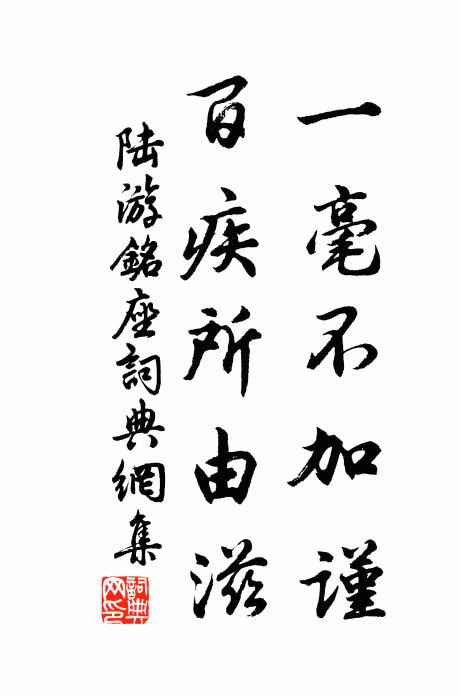 一毫不加謹
百疾所由滋
陸游銘座詞典網集
詞典網印